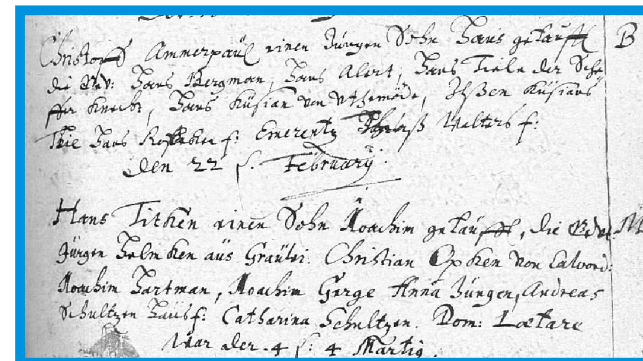 Christoff Ammerpaul einen Jungen Sohn Hans getaufft B
die Gev: Hans Bergman, Hans Alert, Hans Tiele der Sche
ffer Knecht, Hans Kusian von Uthmöde, Kusians
Hans f: Emerentz Walters f:
den 22 f. February.
Hans Titken einen Sohn Joachim getaufft, die Gev M
Jürgen Helmken aus Christian Opken von Calvord:
Joachim Hartman, Joachim Gerge Anna Jürgen, Andreas
Schultzen Hausf: Catharina Schultzen. Dom: Laetare
war der 4 f: 4 Martij.